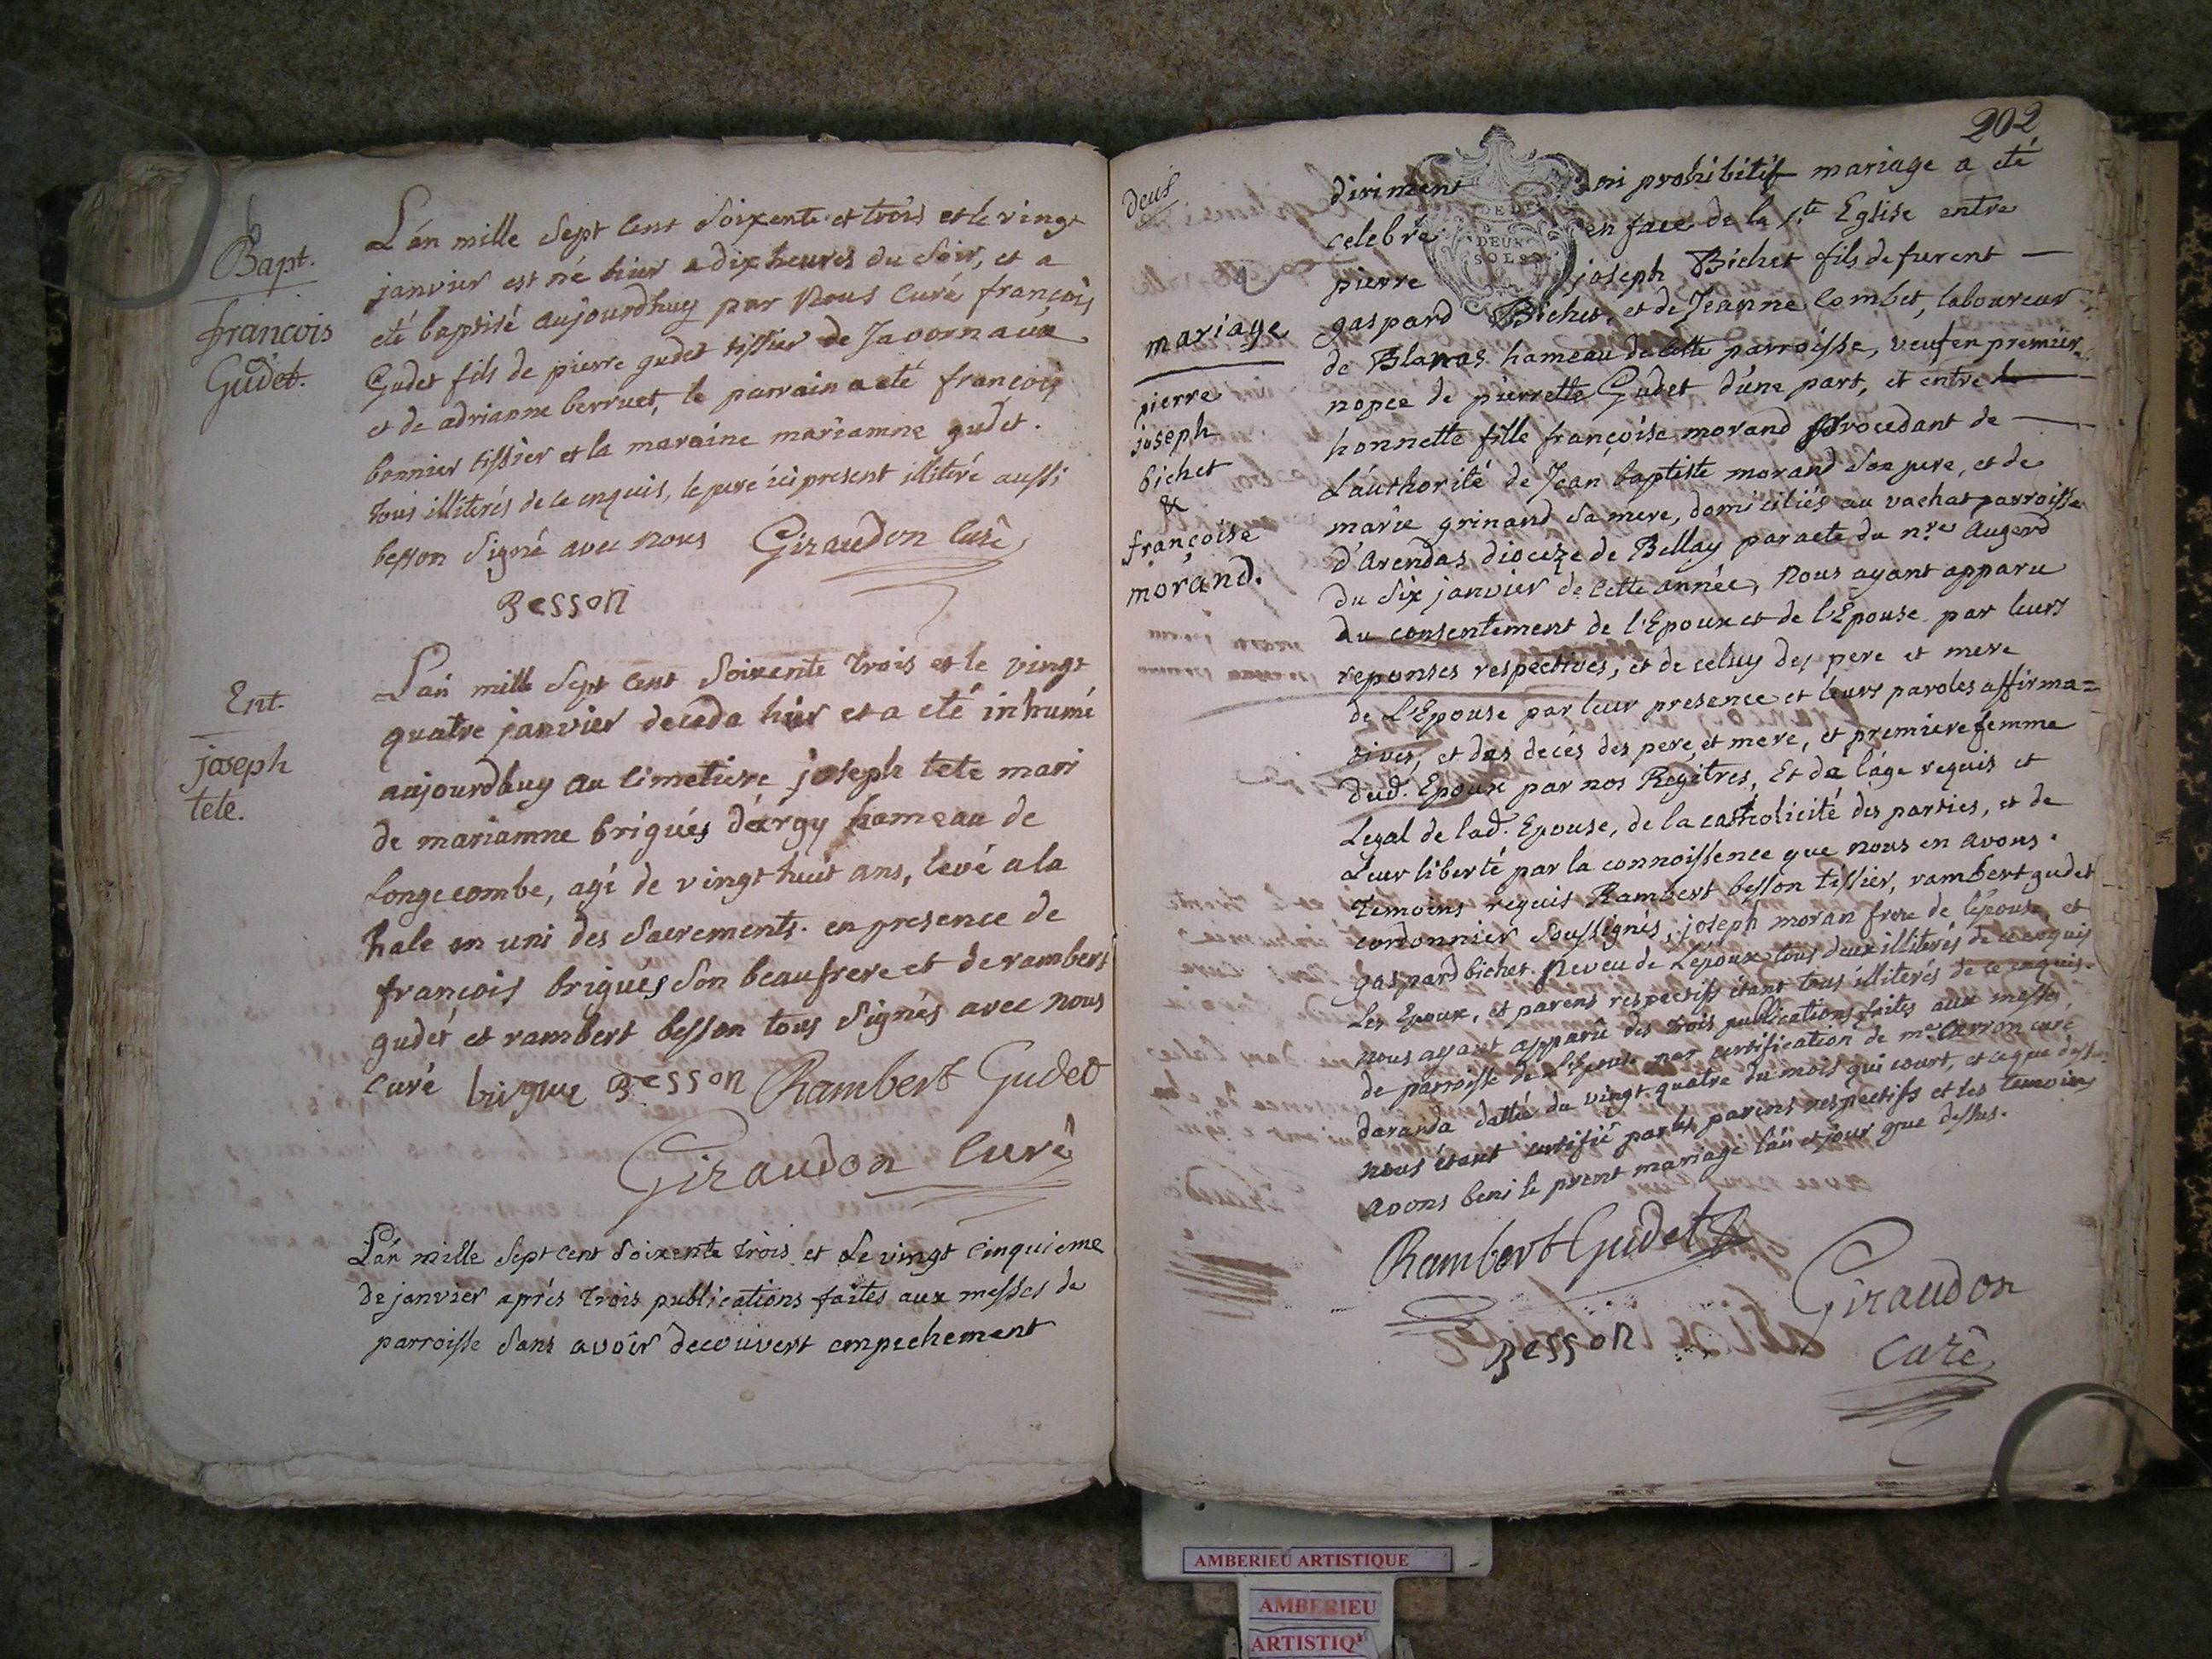 Bapt.
francois
Gudet.
L'án mille Sept Cent Soixente et trois et le vingt
janvier est né hier a dix heures du Soir, et a
eté baptisé aujourdhuy par Nous Curé françois
Gudet fils de pierre gudet tissier de Javornaux
et de adrianne berruet, le parrain a eté françois
bonnier tissier et la maraine mariamne gudet.
tous illiterés de ce enquis, le pere ici present illiteré aussi
besson Signé avec nous Giraudon Curé
Besson
Ent.
joseph
tete.
L'án mille Sept Cent Soixente trois et le vingt
quatre janvier deceda hier et a eté inhumé
aujourdhuy au Cimetiere joseph tete mari
de mariamne brigués d'évrgy hameau de
Longecombe, agé de vingt huit ans, levé a la
hale en uni des Sacrements. en presence de
françois brigués Son beaufrere et de rambert
gudet et rambert besson tous Signés avec nous
Curé brigue Besson Rambert Gudet
Giraudon Curé
L'án mille Sept Cent Soixente trois et Le vingt Cinquieme
de janvier aprés trois publications faites aux messes de
parroisse Sans avoir decouvert empechement
202
deux
diriment ni prohibitif mariage a eté
celebré en face de la Ste Eglise entre
DEUX
SOLS
pierre joseph Bichet fils de furent —
gaspard Bichet, et de Jeanne Combet, laboureur
mariage
pierre
joseph
bichet
&
françoise
morand.
de Blanas hameau de cette parroisse, veuf en premier
nopce de pierrette Gudet d'une part, et entre
honnette fille françoise morand procedant de —
L'authorité de Jean baptiste morand Son pere, et de
marie grinand Sa mere, domiciliés au vachat parroisse
d'Arendas dioceze de Bellay par acte du nre Augerd
du Six janvier de cette année, Nous ayant apparu
du consentement de l'Epoux et de l'Epouse par leurs
reponses respectives, et de celuy des pere et mere
de L'Epouse par leur presence et leurs paroles affirma=
tives, et des decés des pere, et mere, et premiere femme
dud. Epoux par nos Regitres, Et de l'áge requis et
Legal de lad. Epouse, de la catholicité des parties, et de
Leur liberté par la connoissence que nous en avons.
temoins requis Rambert besson tissier, rambert gudet
cordonnier Soussignés, joseph moran frere de l'épouse, et
gaspard bichet Neveu de L'epoux tous deux illiterés de ce enquis
Les Epoux, et parens respectifs étant tous illiterés de ce enquis.
nous ayant apparü des trois publications faites aux messes
de parroisse de l'Epouse par certification de me Carron curé
daranda datté du vingt quatre du mois qui court, et ce que dessus
nous étant certifié par les parens respectifs et les temoins
avons beni le prent mariage l'án et jour que dessus.
Rambert Gudet
Giraudon
Curé
Besson
AMBERIEU ARTISTIQUE
AMBERIEU
ARTISTIQ